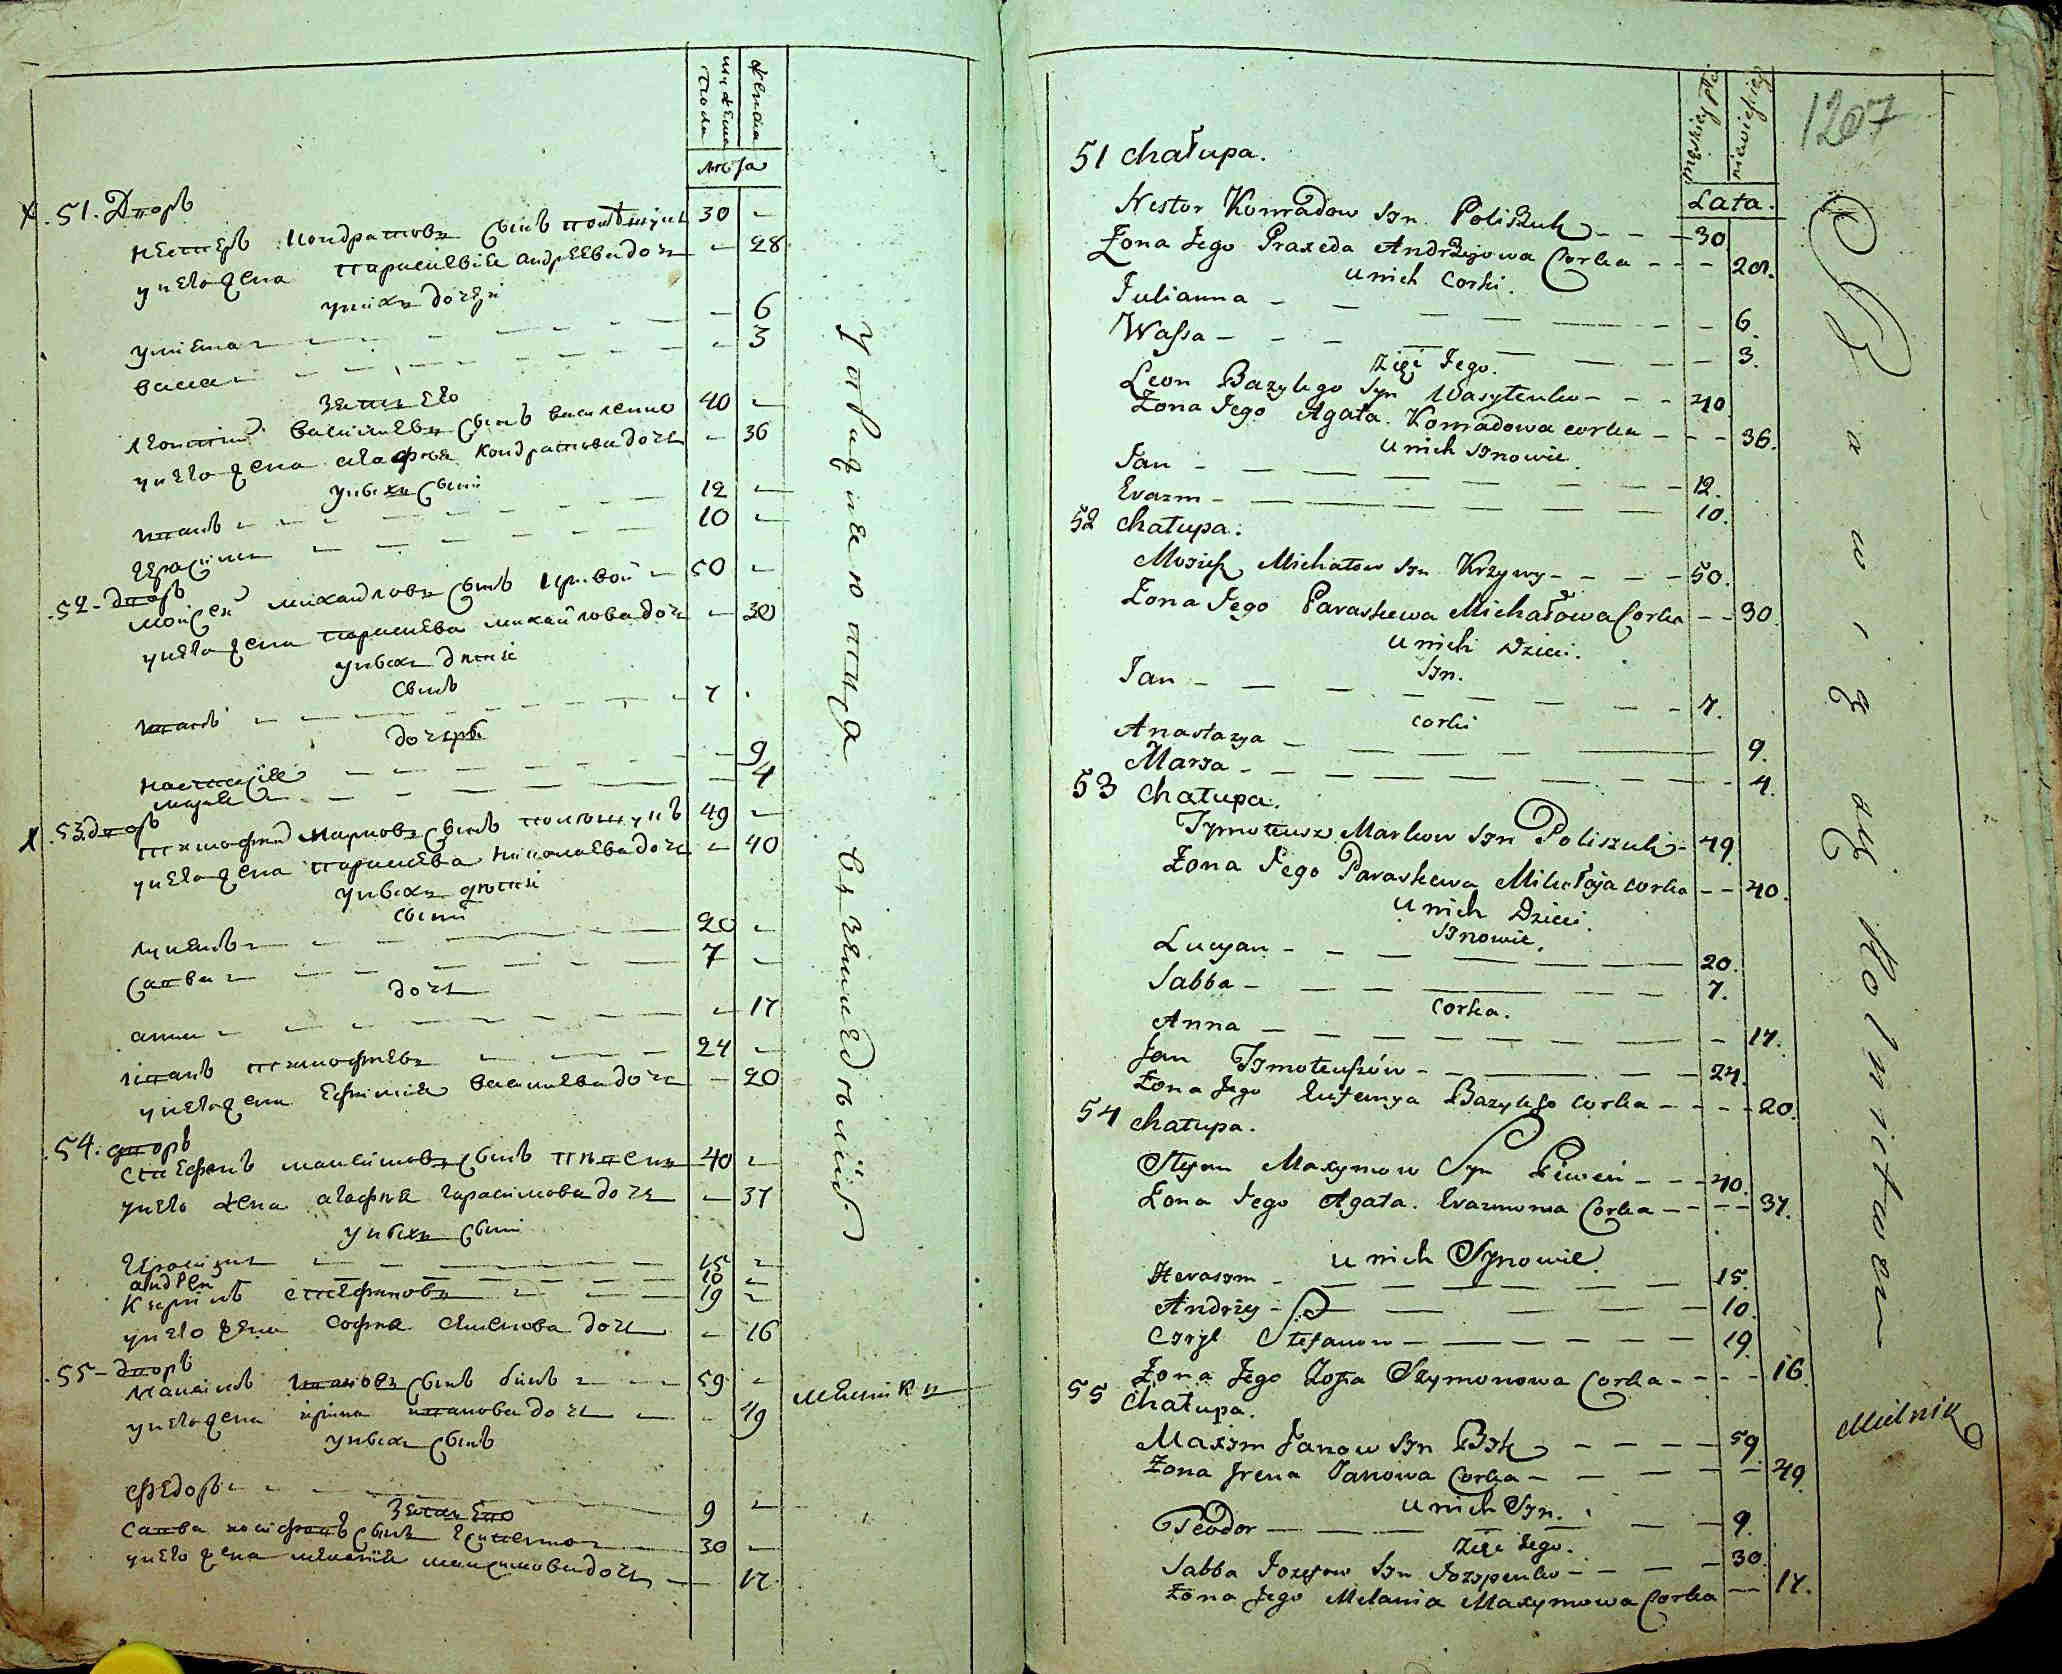 мужеска пола
женска
лѣта
51. Дворъ
Нестеръ Кондратовъ сынъ полѣщукъ 30 -
у него жена параскевия андреева дочь - 28
у нихъ дочери
улиана - 6
васса - 3
зять его
леонтий василиевъ сынъ василенко 40 -
у него жена агафия кондратова дочь - 36
у нихъ сыни
иванъ 12 -
герасимъ 10 -
52 - дворъ
мойсей михайловъ сынъ кривой 50 -
у него жена параскева михайлова дочь - 30
у нихъ дѣти
сынъ
иванъ 7
дочери
настасия - 9
мария - 4
53 дворъ
тимофей марковъ сынъ полѣщукъ 49 -
у него жена параскева николаева дочь - 40
у нихъ дѣти
сыни
лукянъ 20 -
савва 7 -
дочь
анна - 17
иванъ тимофѣевъ 24 -
у него жена ефимия василиева дочь - 20
54. дворъ
Стефанъ максимовъ сынъ пѣвень 40 -
у него жена агафия гарасимова дочь - 37
у нихъ сыни
герасимъ 15 -
андрей 10 -
Кирилъ стефановъ 19 -
у него жена софия семенова дочь - 16
55 - дворъ
Максимъ ивановъ сынъ бикъ 59 -
у него жена ирина иванова дочь - 49
у нихъ сынъ
федоръ 9 -
зять его
савва иосифовъ сынъ 30 -
у него жена мелания максимова дочь - 17
упражняются въ земледѣлии
мелникъ
męskiey płci
niewieściey
Lata.
1207
51 chałupa.
Nestor Konradow syn Poliszuk - - - 30
Żona Jego Praxeda Andrzejowa Corka - - - 28.
u nich Corki.
Julianna - 6.
Wassa - 3.
Zięć Jego.
Leon Bazylego Syn Wasylenko - - - 40
Żona Jego Agata. Konradowa corka - - - 36.
u nich synowie.
Jan - 12.
Erazm - 10.
52 chałupa.
Mosiey Michałow syn Krzywy - - - 50.
Żona Jego Paraskewa Michałowa Corka - - 30.
u nich Dzieci.
syn.
Jan - 7.
corki
Anastazya - 9.
Marya - 4.
53 chałupa.
Tymoteusz Markow syn Poliszuk - 49.
Żona Jego Paraskewa Mikołaja corka - - 40.
u nich Dzieci.
synowie.
Lucyan - 20.
Sabba - 7.
Corka.
Anna - 17.
Jan Tymoteuszów - 24.
Żona Jego Eufemya Bazylego corka - - - 20.
54 chałupa.
Stefan Maxymow Syn Piweń - - - 40.
Żona Jego Agata. Erazmowa Corka - - - 37.
u nich Synowie.
Herasym - 15.
Andrzy - 10.
Cyryl Stefanow - 19.
Żona Jego Zofia Szymonowa Corka - - - 16.
55 chałupa.
Maxym Janow syn Byk - - - 59.
Żona Irena Janowa Corka - 49.
u nich syn.
Teodor - 9.
Zięć Jego.
Sabba Jozefow syn Jozypenko - - - 30.
Żona Jego Melania Maxymowa Corka - - 17.
Bawią się Rolnictwem
Mielnik